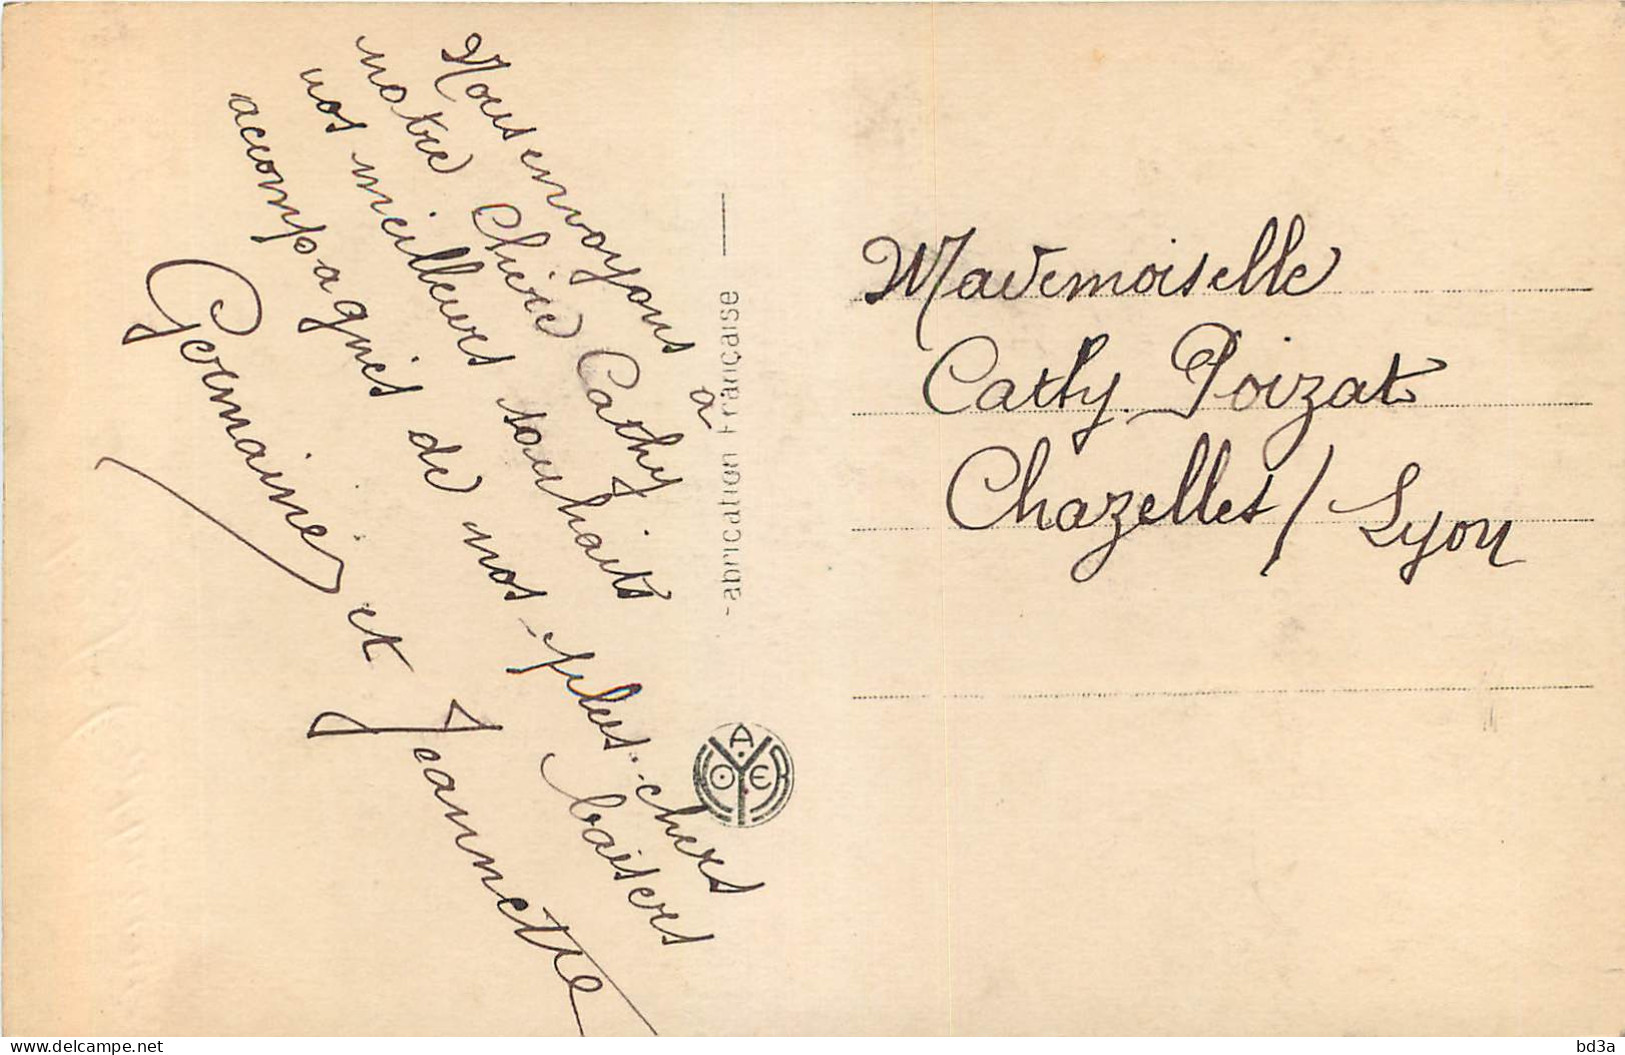 Nous envoyons à
notre Chère Cathy
nos meilleurs souhaits
accompagnés de nos plus chers
baisers
Germaine et Jeannette
Fabrication Française
Mademoiselle
Cathy Poizat
Chazelles / Lyon
www.delcampe.net
bd3a